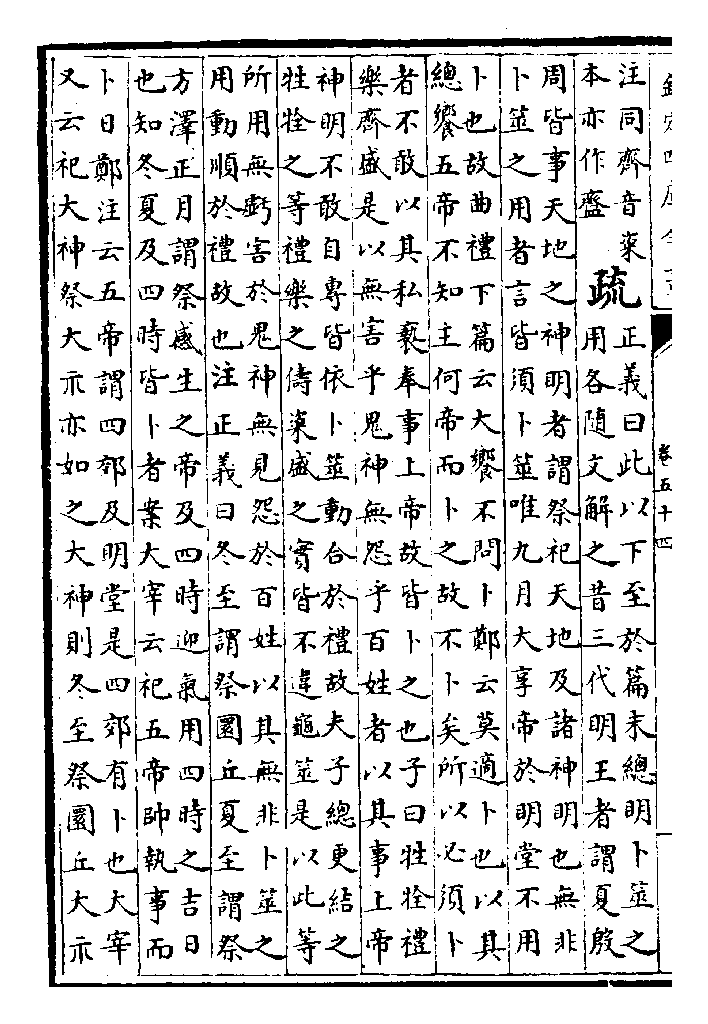 欽定四庫全書
卷五十四
注同齊音粢
本亦作齍
疏
正義曰此以下至於篇末總明卜筮之
用各隨文解之昔三代明王者謂夏殷
周皆事天地之神明者謂祭祀天地及諸神明也無非
卜筮之用者言皆須卜筮唯九月大享帝於明堂不用
卜也故曲禮下篇云大饗不問卜鄭云莫適卜也以其
總饗五帝不知主何帝而卜之故不卜矣所以必須卜
者不敢以其私褻奉事上帝故皆卜之也子曰牲牷禮
樂齊盛是以無害乎鬼神無怨乎百姓者以其事上帝
神明不敢自專皆依卜筮動合於禮故夫子總更結之
牲牷之等禮樂之儔粢盛之實皆不違龜筮是以此等
所用無虧害於鬼神無見怨於百姓以其無非卜筮之
用動順於禮故也注正義曰冬至謂祭圜丘夏至謂祭
方澤正月謂祭感生之帝及四時迎氣用四時之吉日
也知冬夏及四時皆卜者案大宰云祀五帝帥執事而
卜日鄭注云五帝謂四郊及明堂是四郊有卜也大宰
又云祀大神祭大示亦如之大神則冬至祭圜丘大示